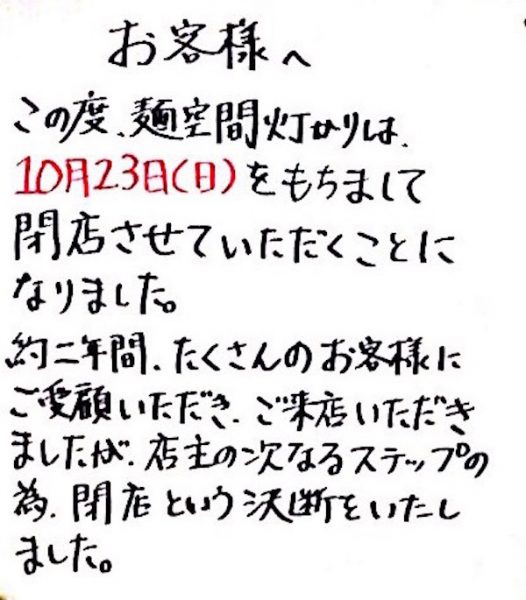 お客様へ
この度、麺空間灯かりは、
10月23日(日)をもちまして
閉店させていただくことに
なりました。
約二年間、たくさんのお客様に
ご愛顧いただき、ご来店いただき
ましたが、店主の次なるステップの
為、閉店という決断をいたし
ました。